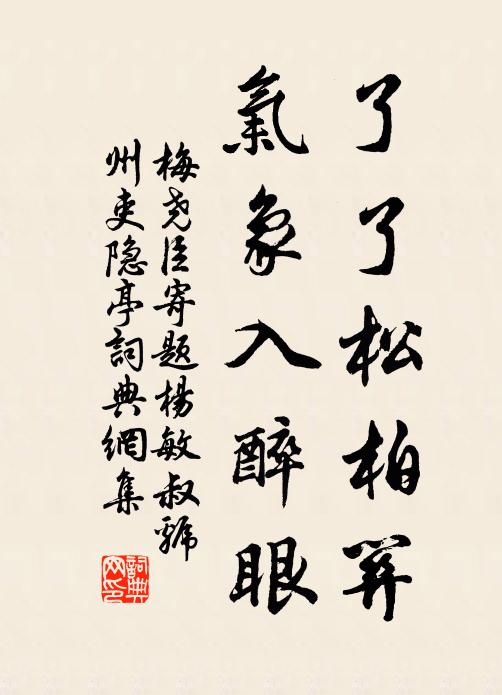 了了松柏
氣象入醉眼
梅尧臣寄题楊敏叔虢
州吏隐亭詞典網集
詞典
网印